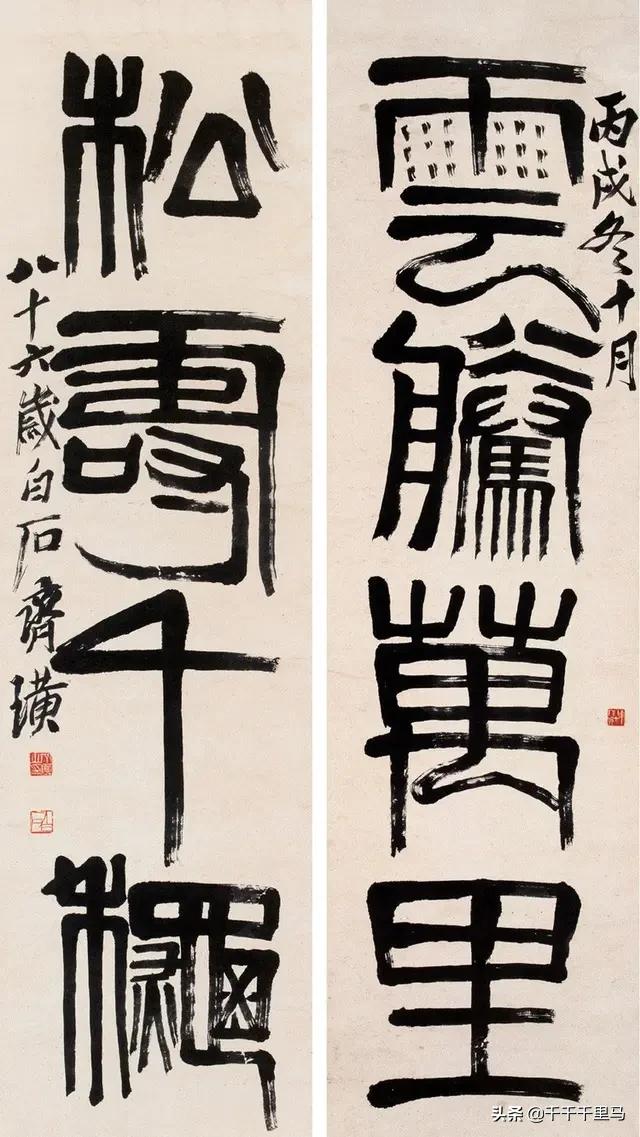 丙戌冬十月
雲騰萬里
松壽千龝
八十六歲白石齊璜
头条 @千千千里马